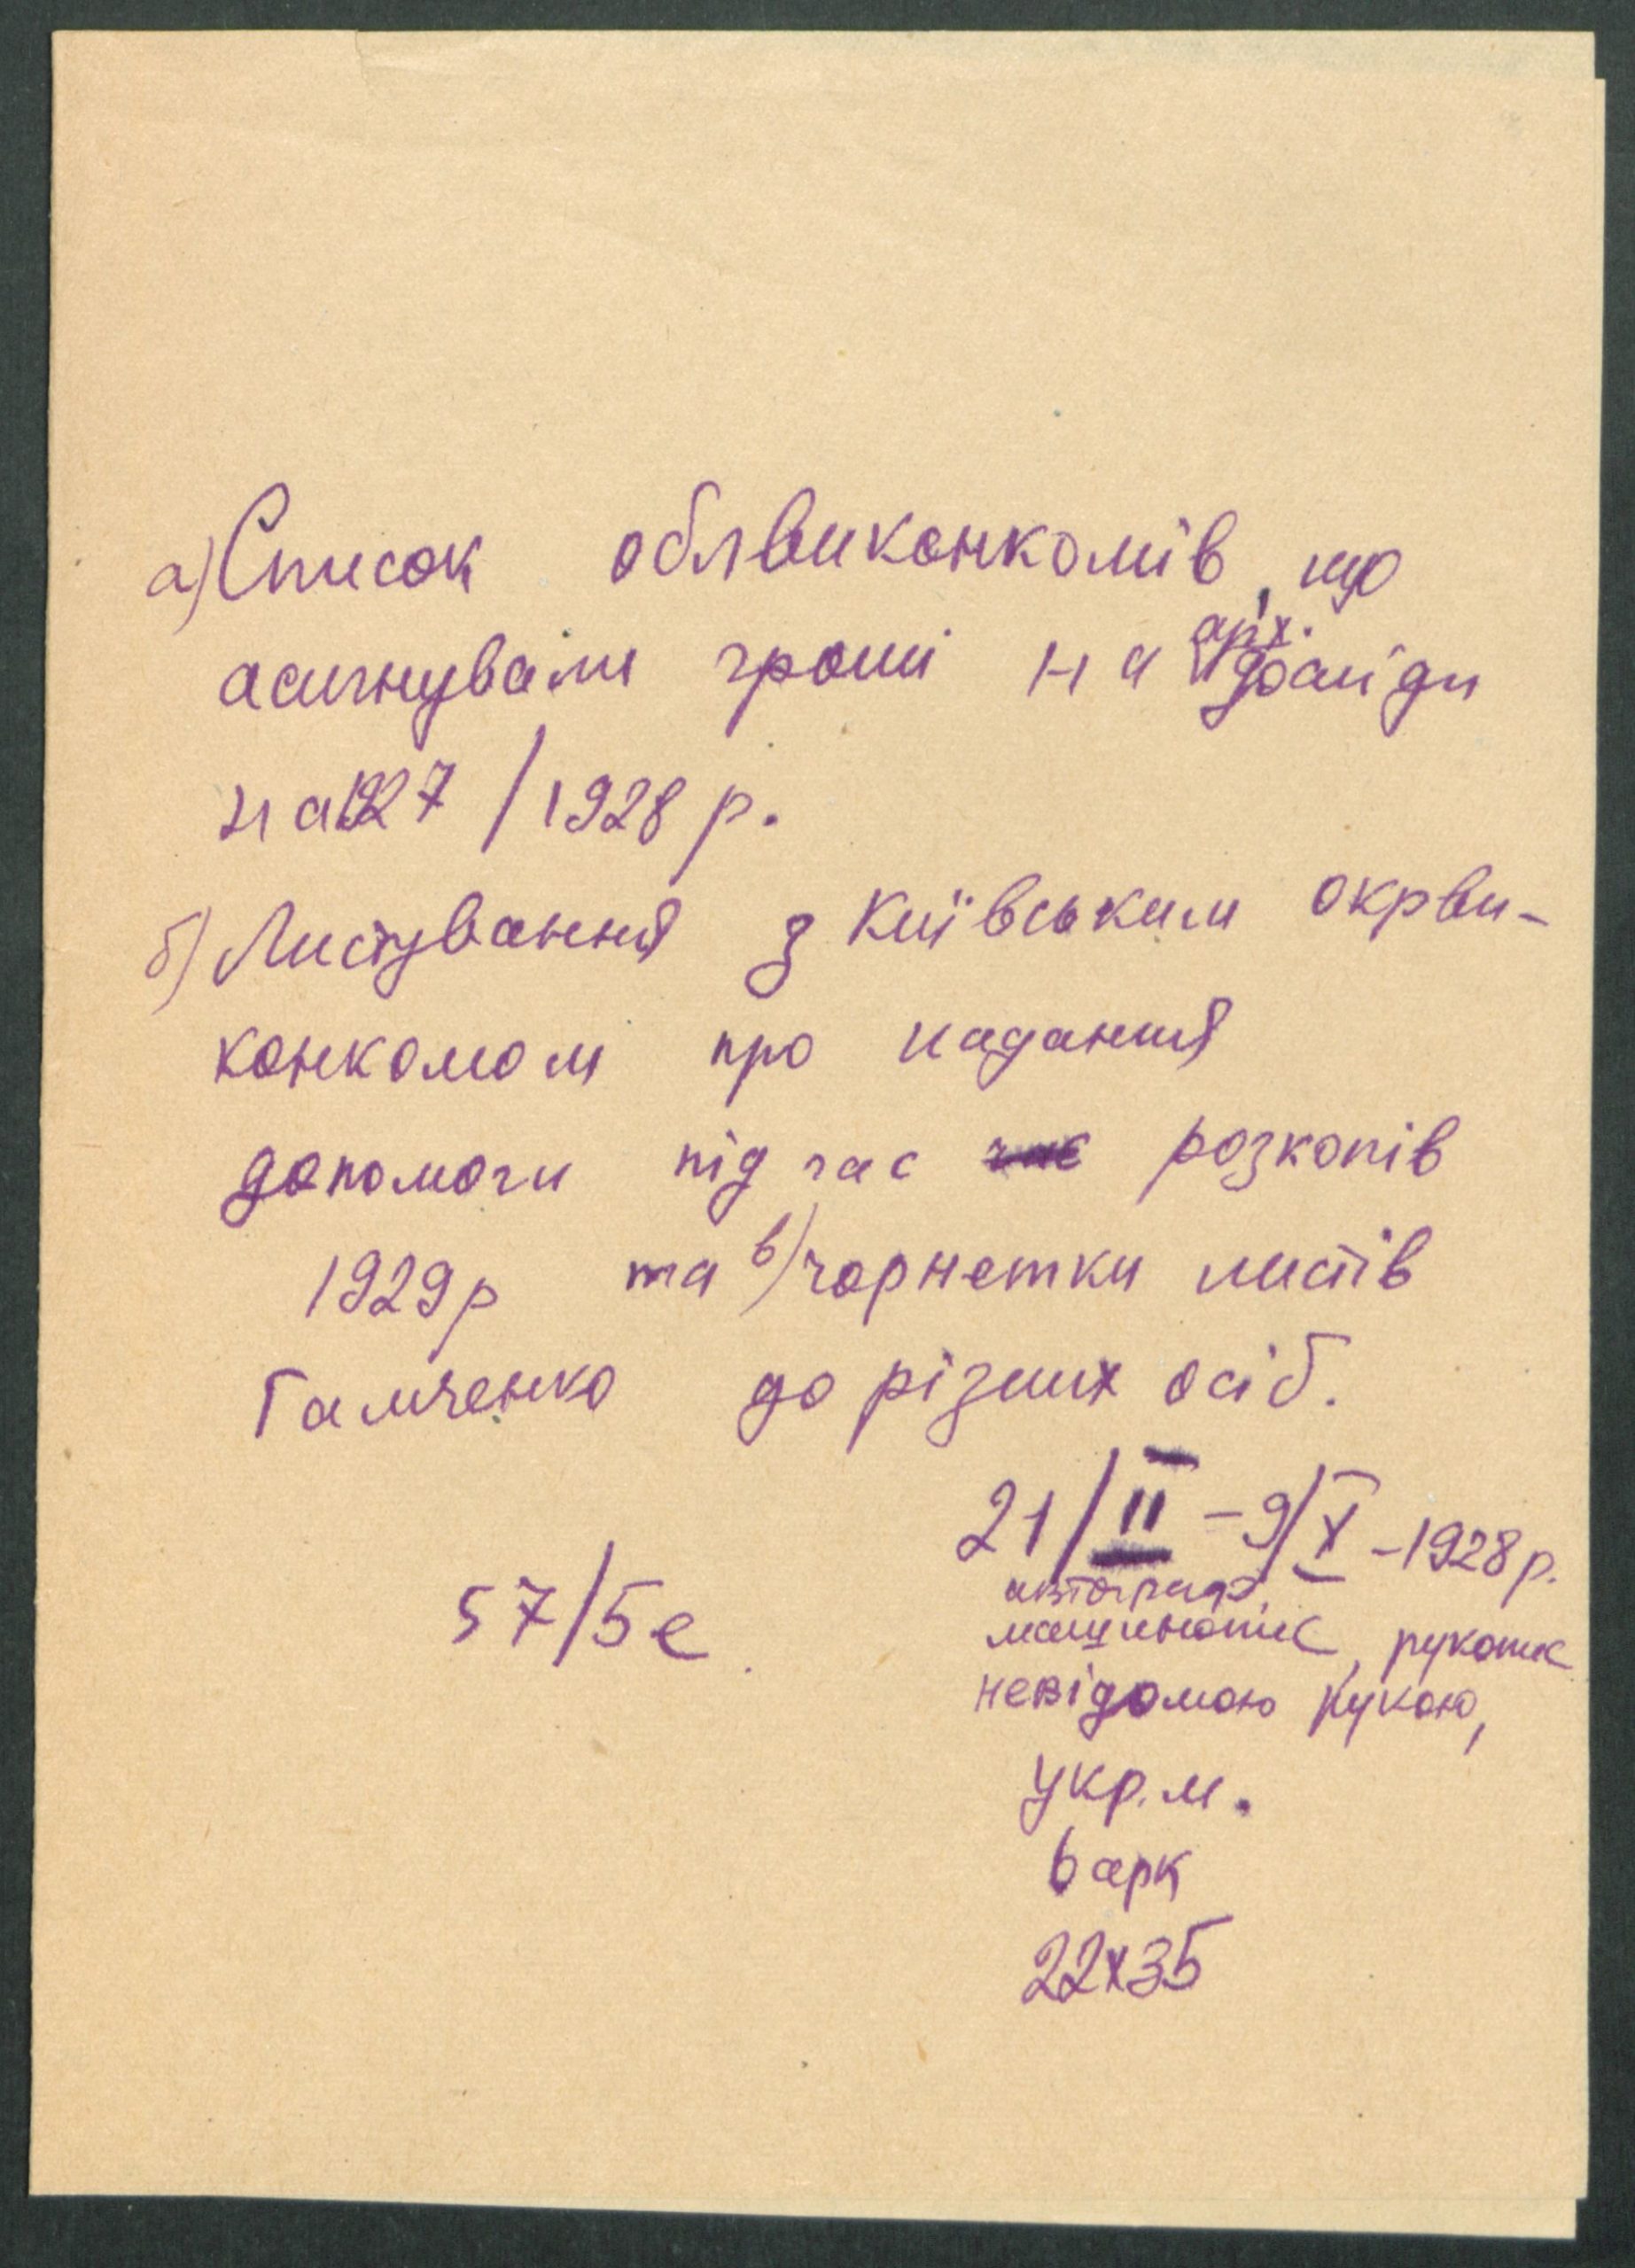 а) Список облвиконкомів, що
асигнували гроші на арх. досліди
на 1927 / 1928 р.
б) Листування з Київським окрви-
конкомом про надання
допомоги під час розкопів
1929р та в) чорнетки листів
Гамченко до різних осіб.
21/II – 9/X – 1928 р.
57/5е
автограф,
машинопис, рукопис
невідомою рукою,
укр. м.
6 арк
22х35